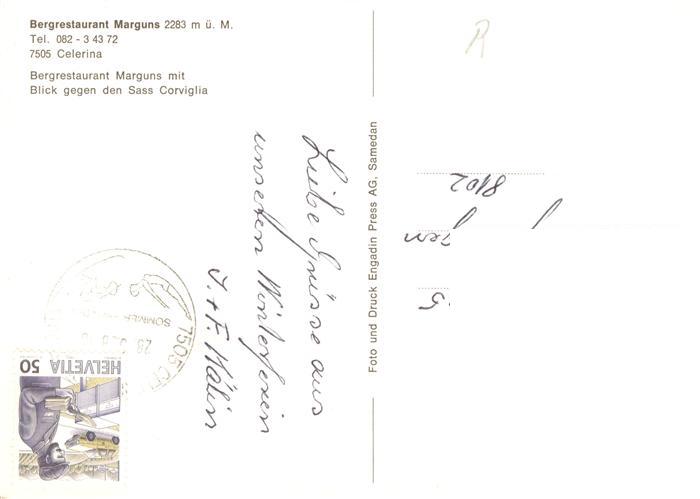 Bergrestaurant Marguns 2283 m ü. M.
Tel. 082 - 3 43 72
7505 Celerina
Bergrestaurant Marguns mit
Blick gegen den Sass Corviglia
Liebe Grüsse aus
unseren Winterferien
J. + F. Mälin
Foto und Druck Engadin Press AG, Samedan
R
8102
7505 CE
SOMMER
HELVETIA 50